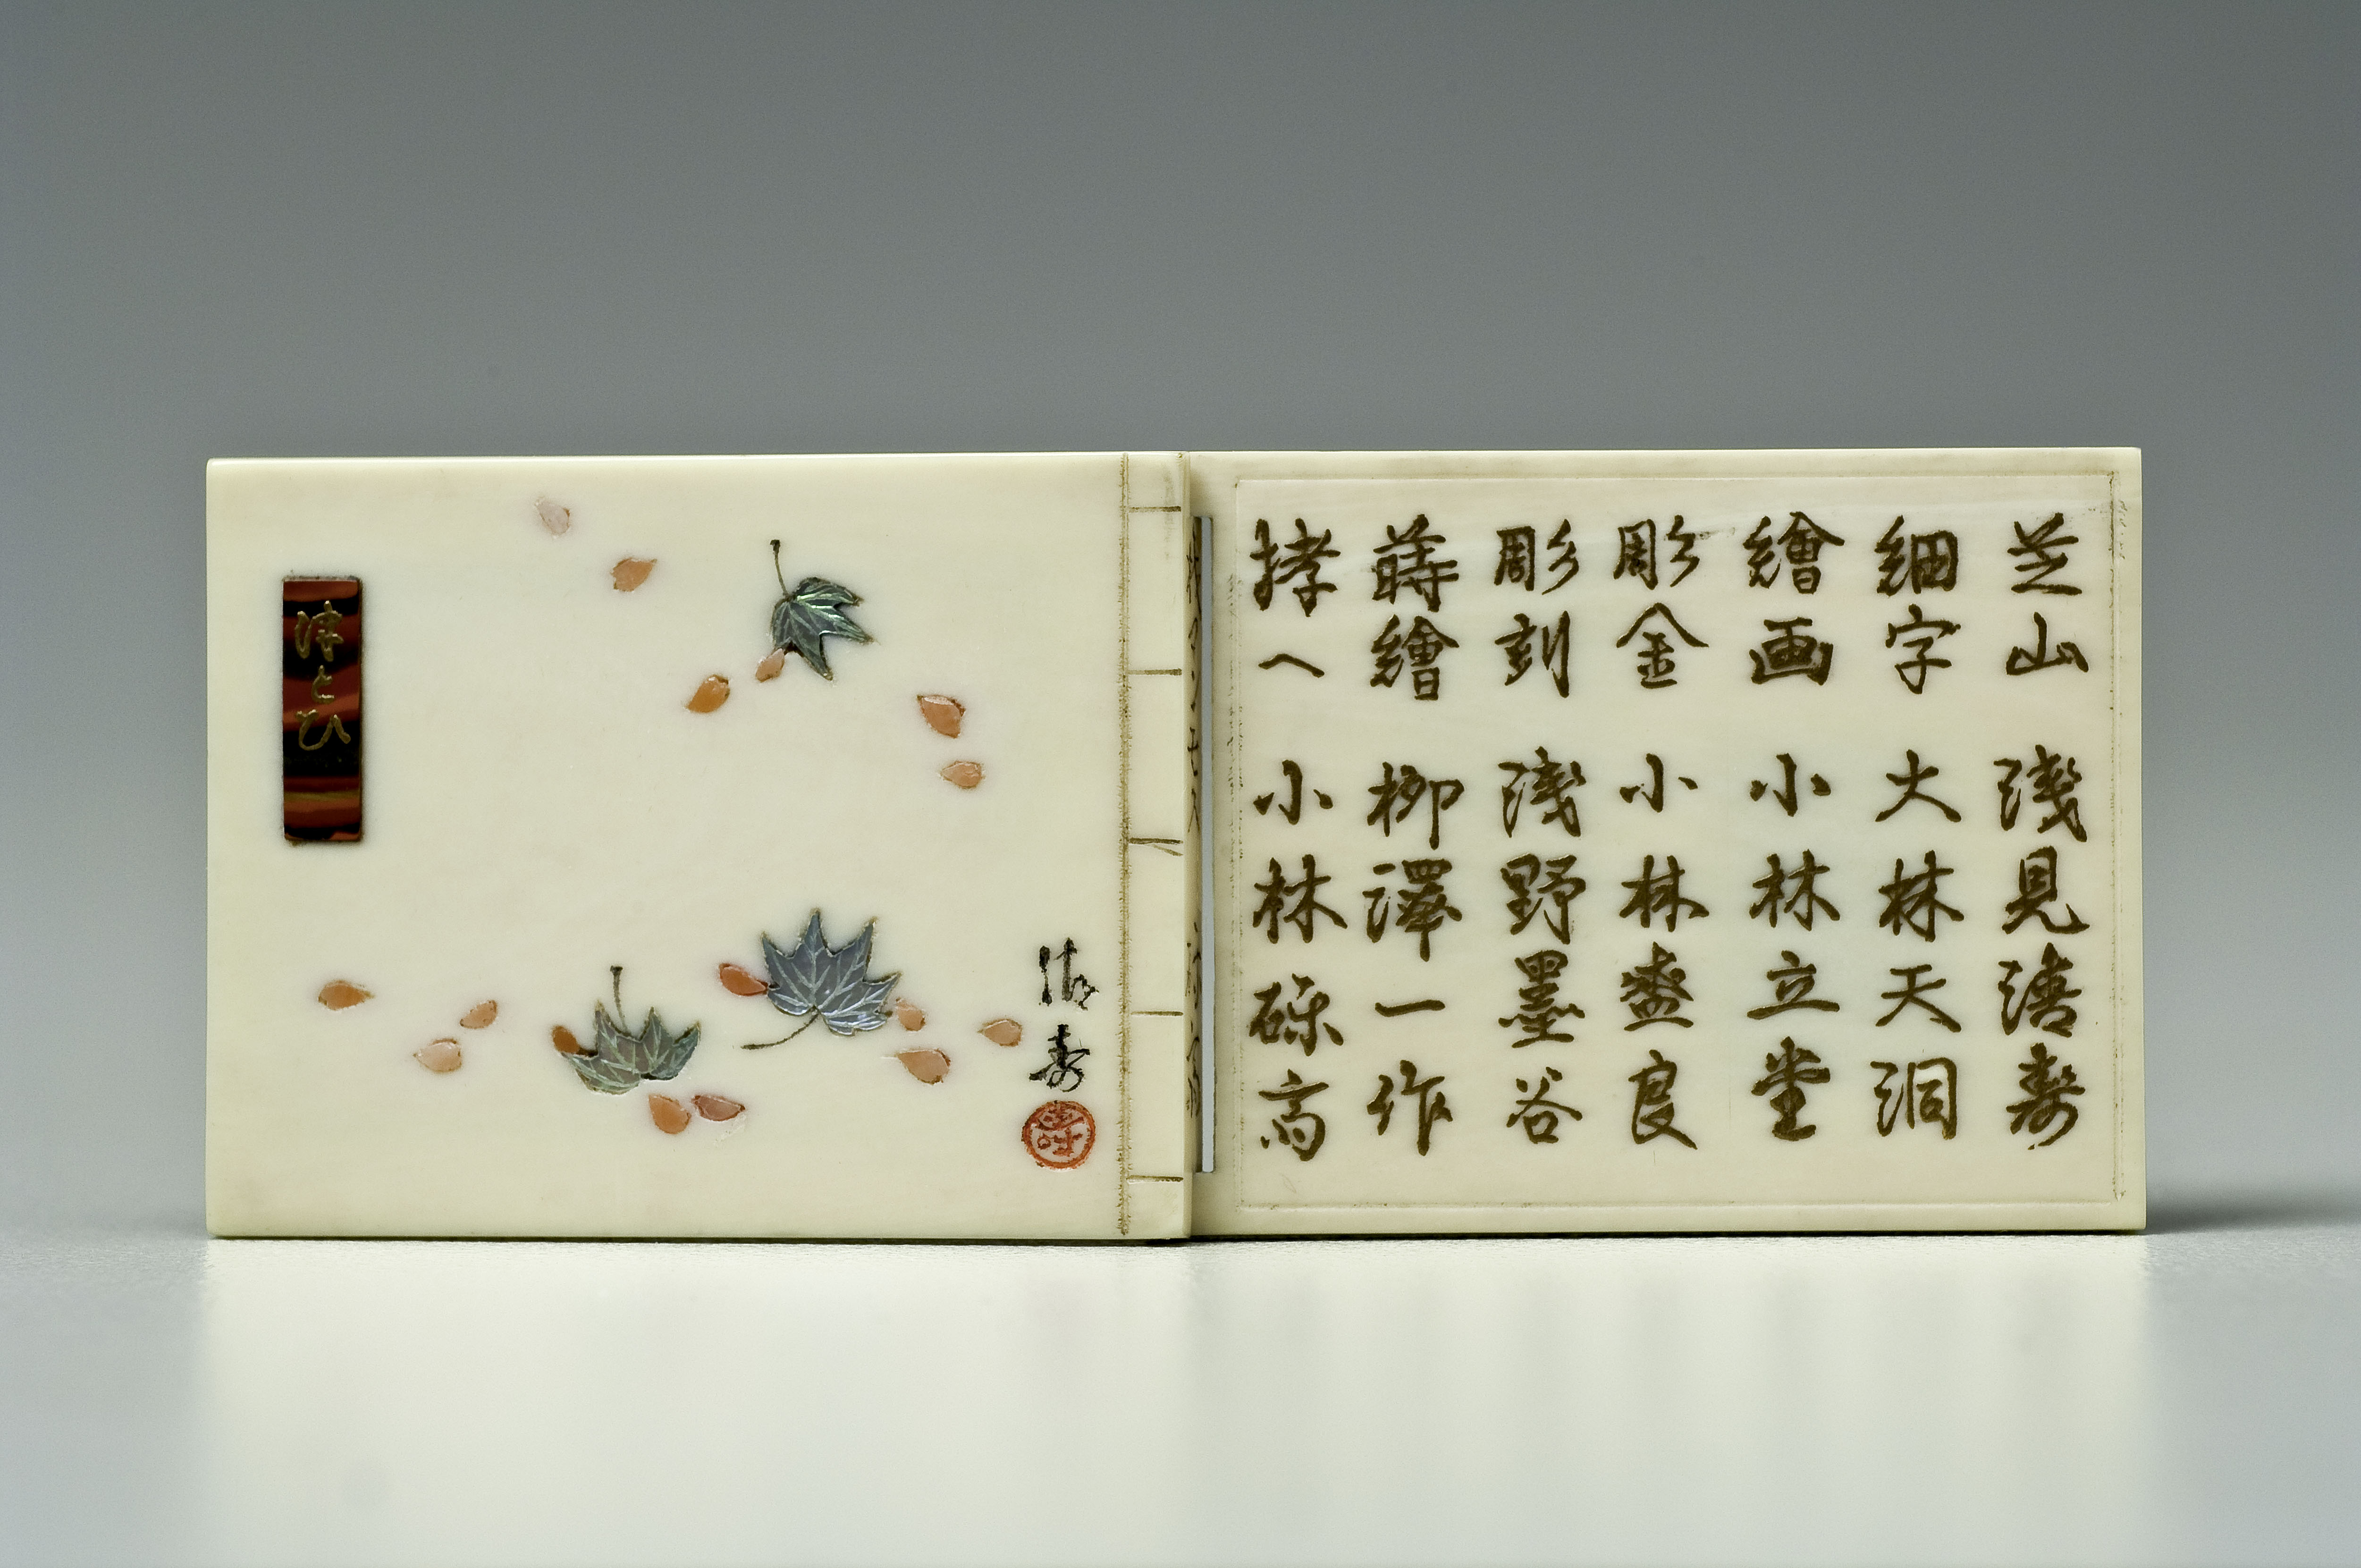 芝山 淺見壽
細字 大林天洞
繪画 小林立堂
彫金 小林盛良
彫刻 淺野墨谷
蒔繪 柳澤一作
拵へ 小林高
寿
津とひ